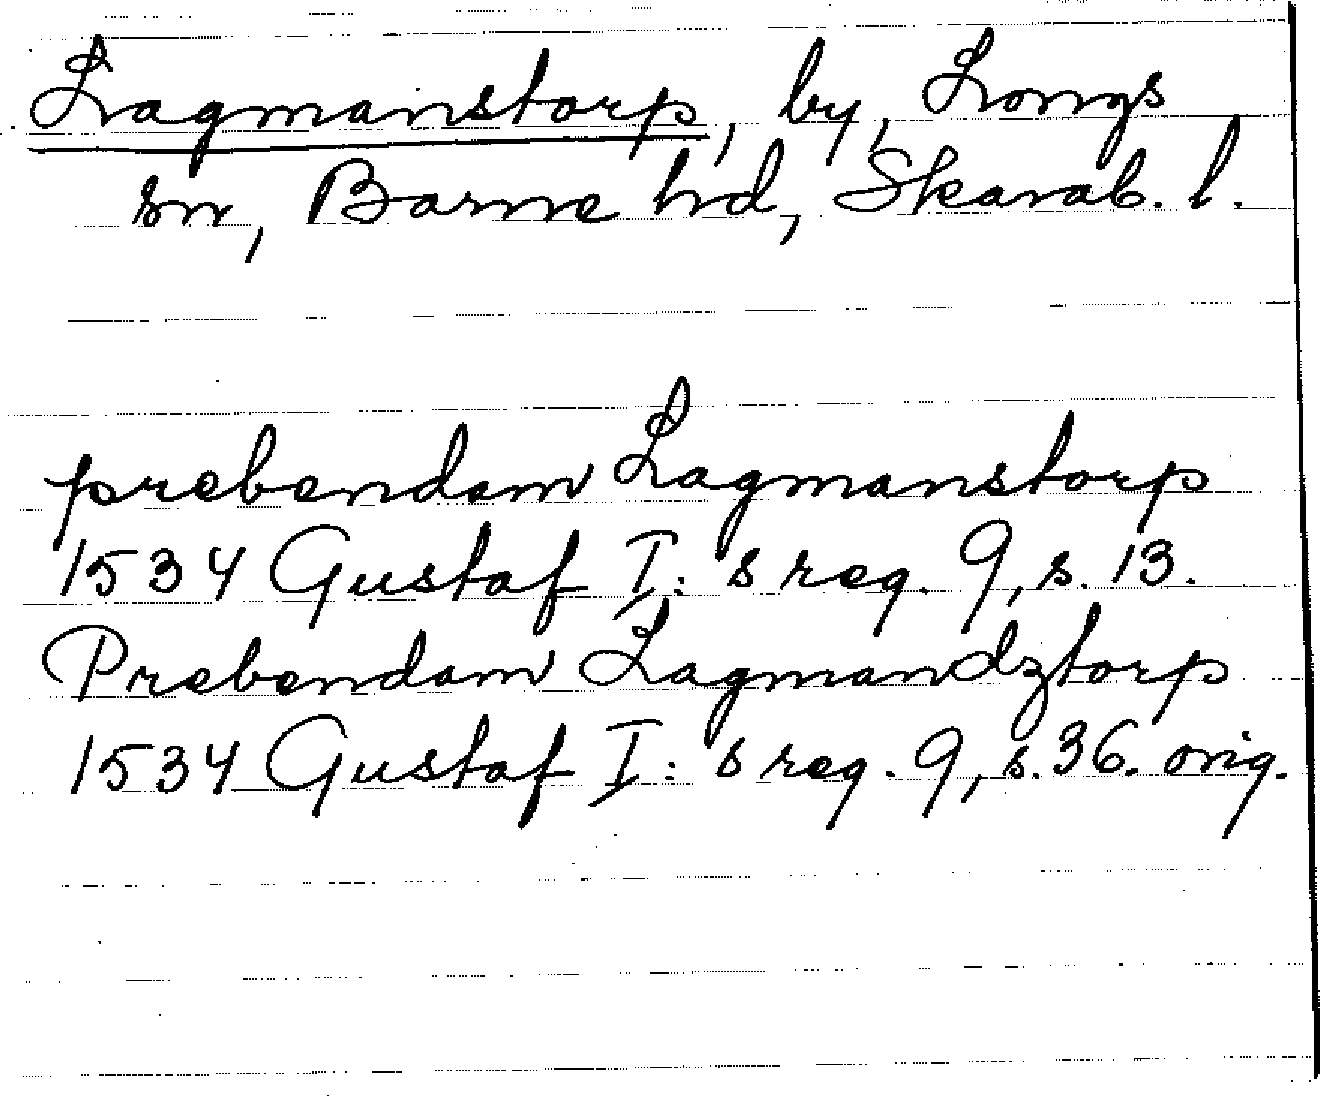 Lagmanstorp, by, Longs
sn, Barne hd, Skarab. l.
prebendam Lagmanstorp
1534 Gustaf I: s reg. 9, s. 13.
Prebendam Lagmandztorp
1534 Gustaf I: s reg. 9, s. 36. orig.